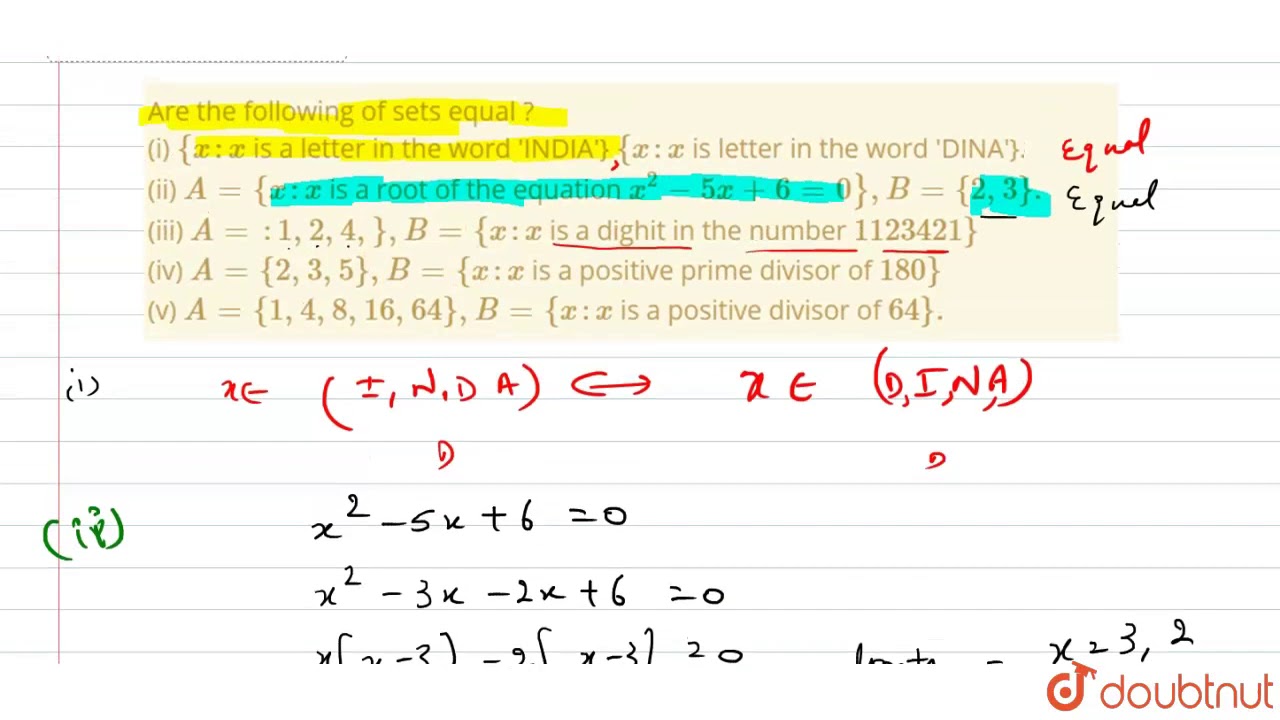 Are the following of sets equal ?
(i) {x : x is a letter in the word 'INDIA'}, {x : x is letter in the word 'DINA'}. Equal
(ii) A = {x : x is a root of the equation x² − 5x + 6 = 0}, B = {2, 3}. Equal
(iii) A = : 1, 2, 4, }, B = {x : x is a dighit in the number 1123421}
(iv) A = {2, 3, 5}, B = {x : x is a positive prime divisor of 180}
(v) A = {1, 4, 8, 16, 64}, B = {x : x is a positive divisor of 64}.
(i) x ∈ (I, N, D A) ⟷ x ∈ (D, I, N, A)
D D
(ii) x² − 5x + 6 = 0
x² − 3x − 2x + 6 = 0
x(x − 3) − 2(x − 3) = 0
x = 3, 2
doubtnut